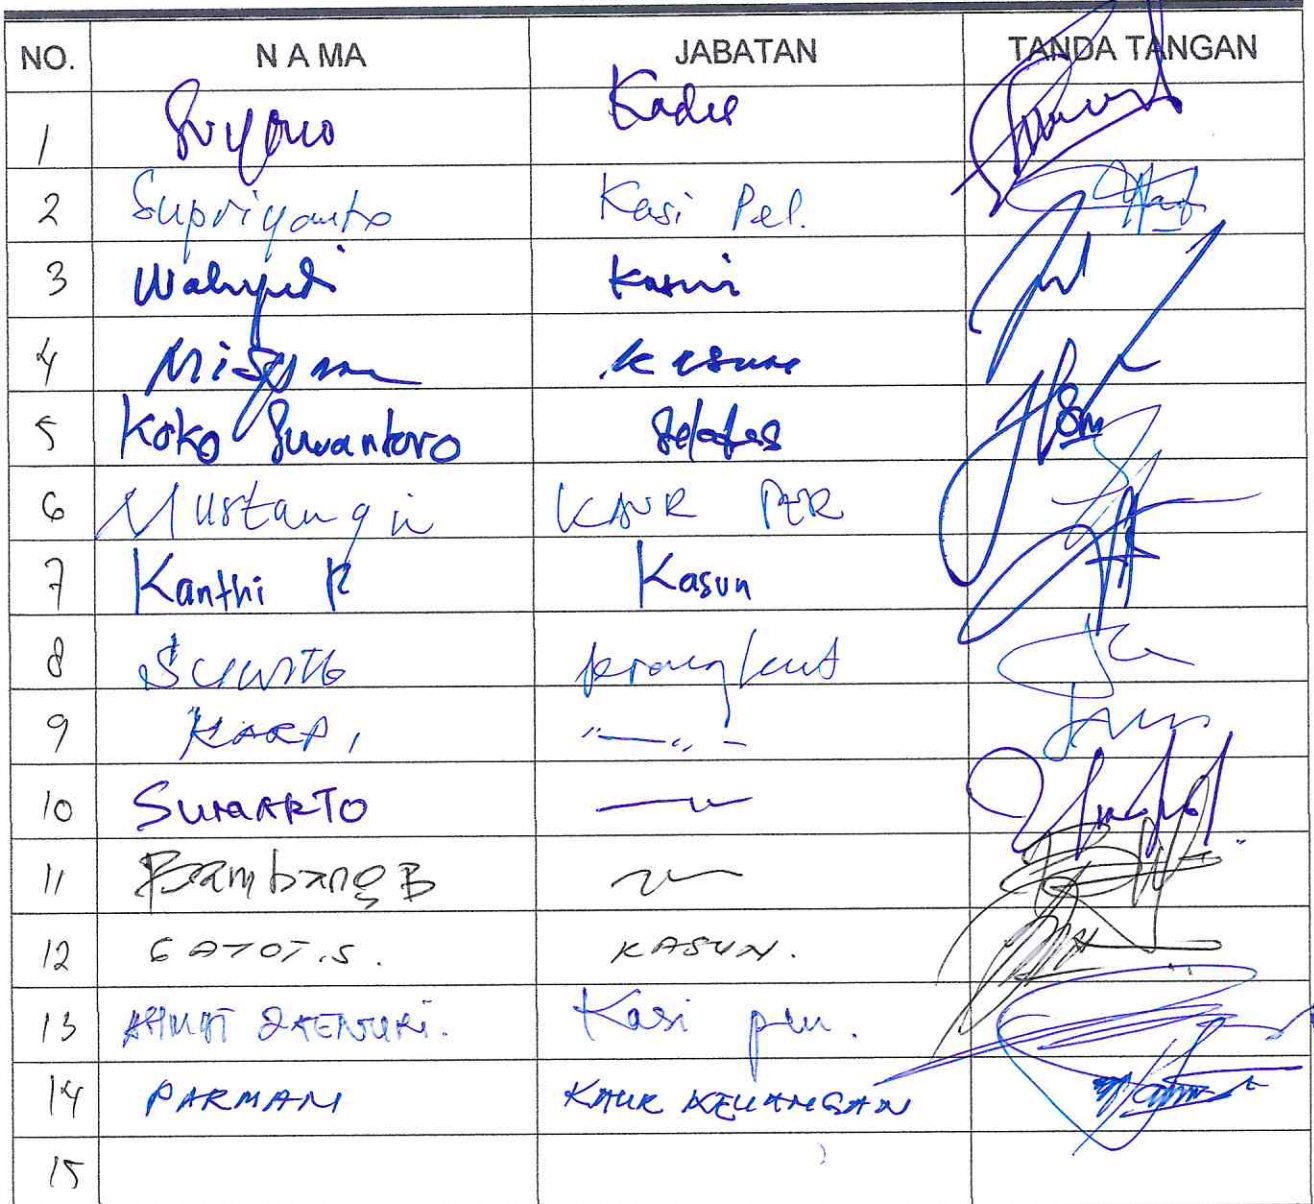 NO. N A M A JABATAN TANDA TANGAN
1 Suyono Kades
2 Supriyanto Kasi Pel.
3 Wahyudi Kasun
4 Kasun
5 Koko Suwantoro
6 Mustangin KAUR PER
7 Kanthi R Kasun
8 Suwito perangkat
9 KARPI —〃—
10 SUWARTO —〃—
11 Bambang B
12 GATOT.S. KASUN.
13 Kasi pem.
14 PARMAN KAUR KEUANGAN
15